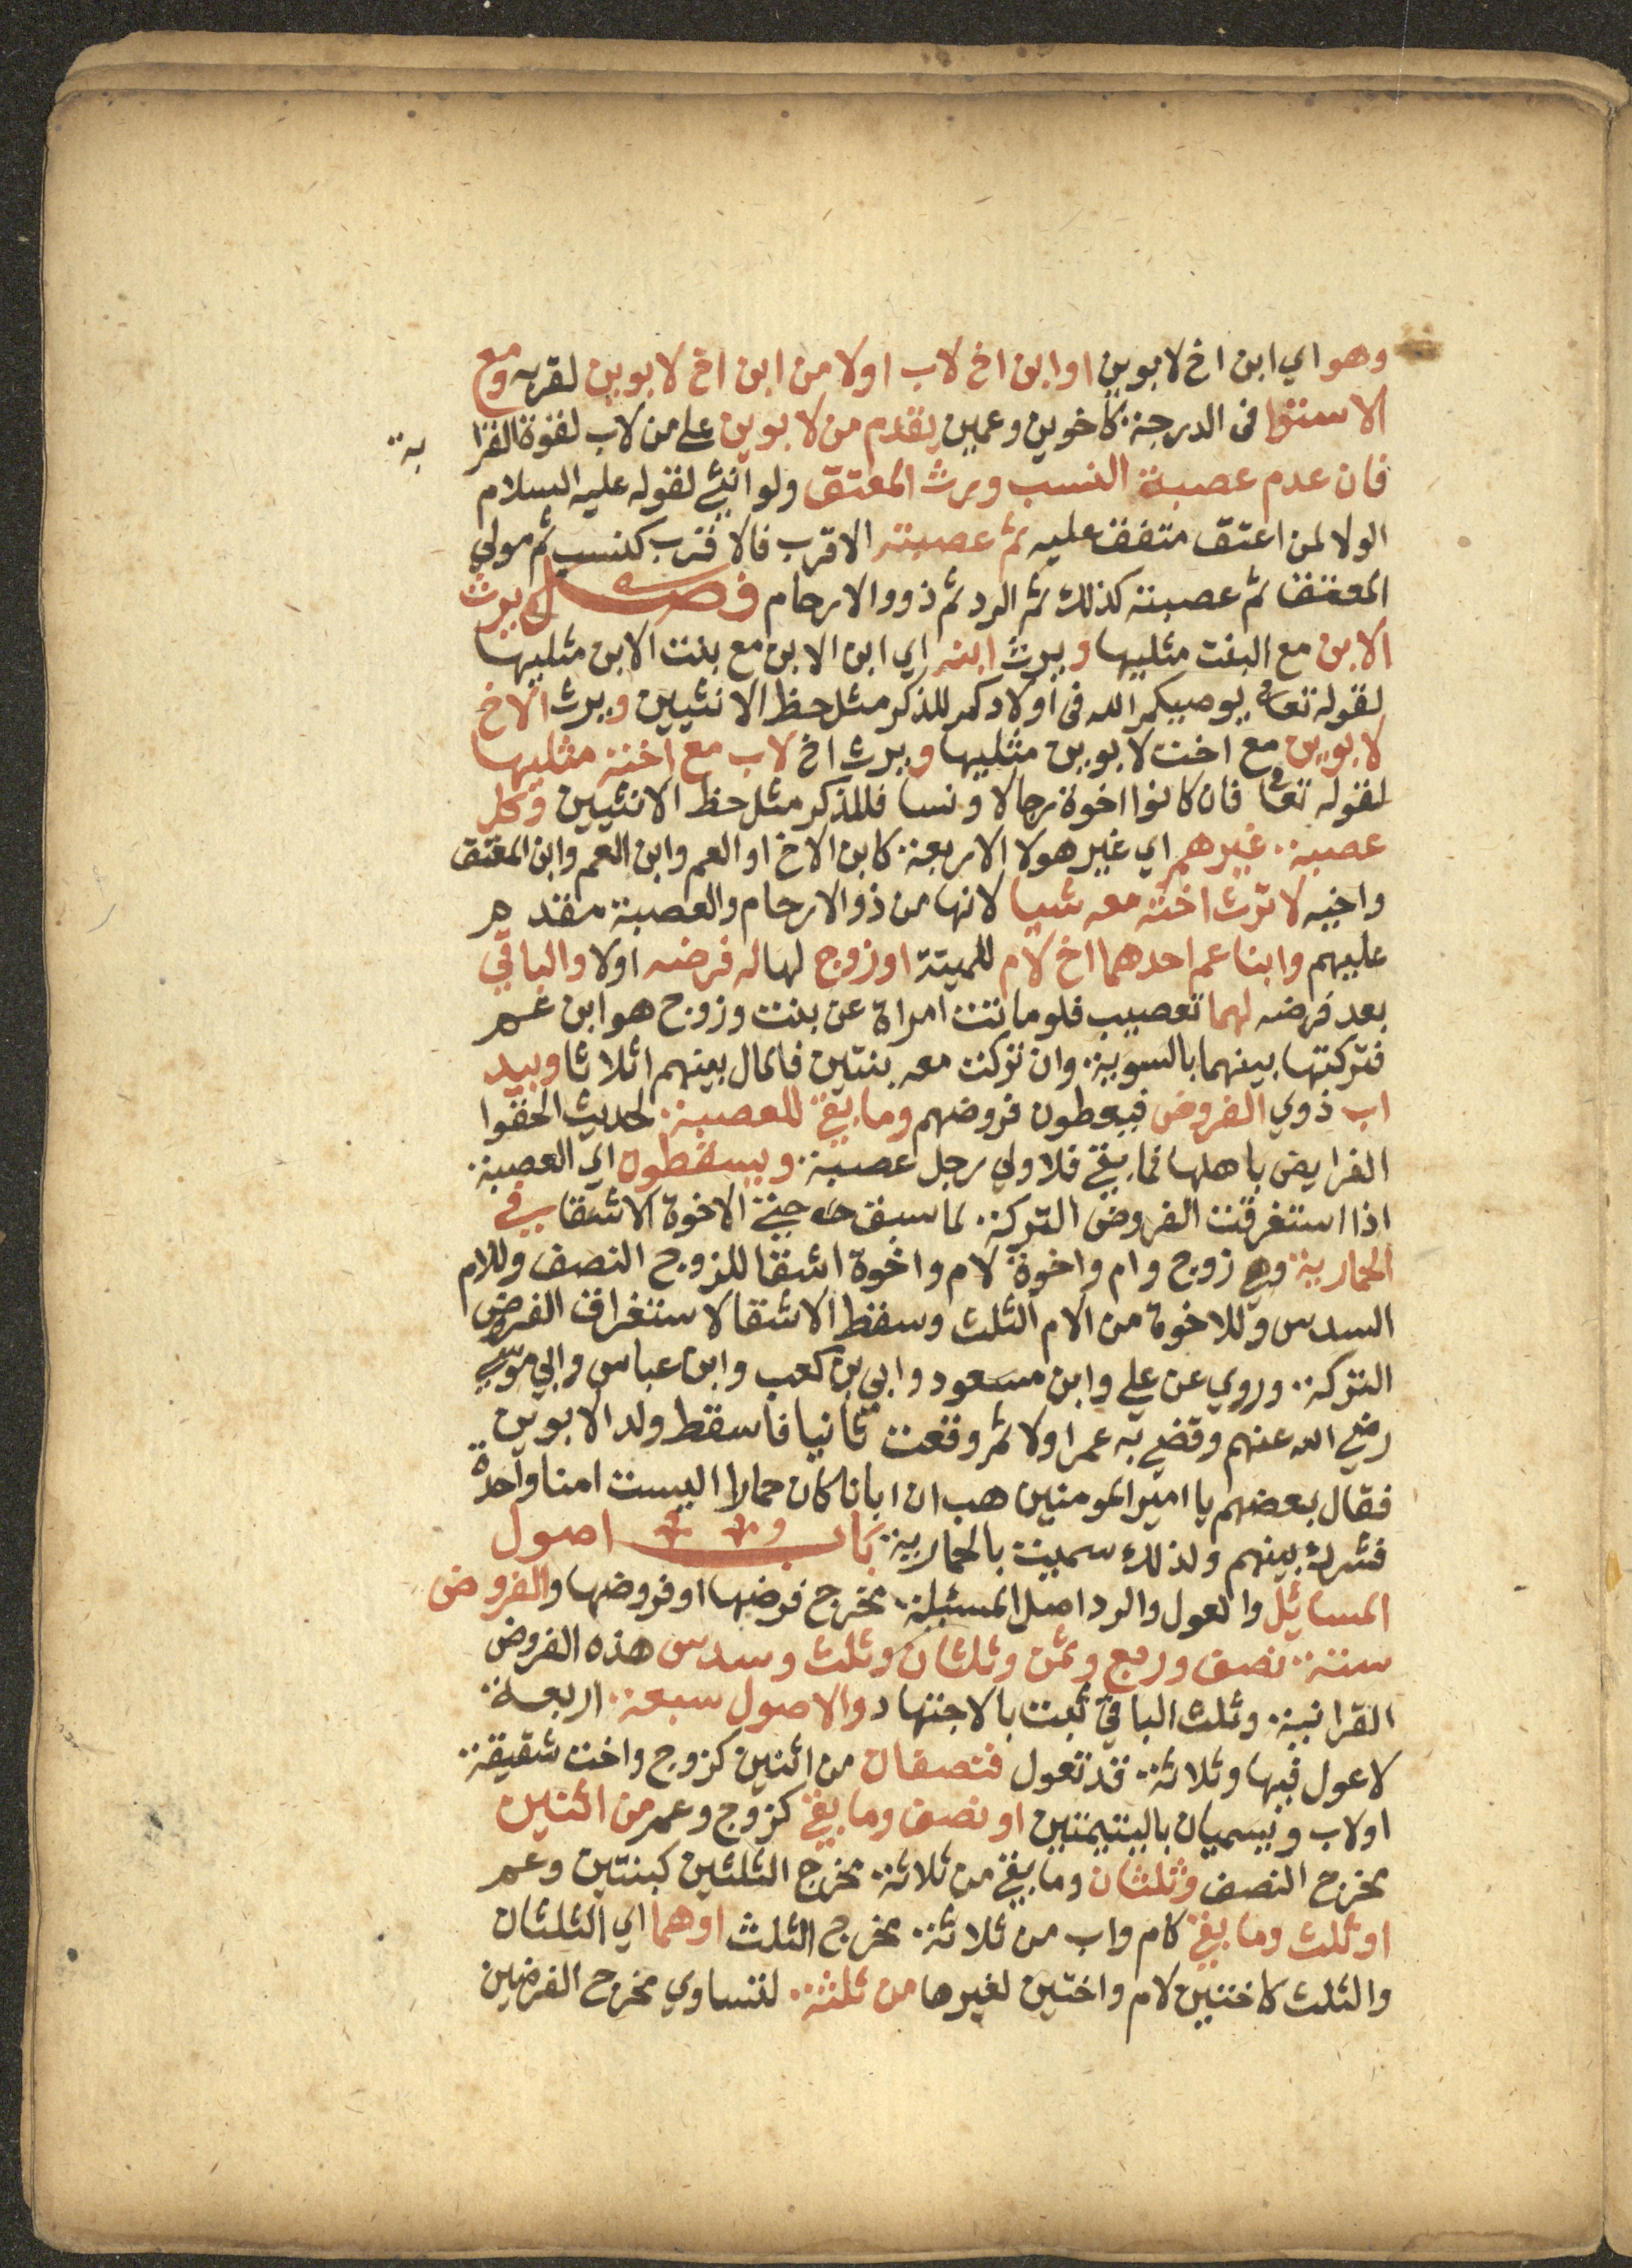 وهو اي ابن اخ لابوين او ابن اخ لاب اولا من ابن ابن اخ لابوين لقربه ومع
الاستوا فى الدرجة كاخوين وعمين يقدم من لابوين على من لاب لقوة القرا بة
فان عدم عصبة النسب ورث المعتق ولو انثي لقوله عليه السلام
الولا لمن اعتق متفق عليه ثم عصبته الاقرب فالاقرب كنسب ثم مولي
المعتق ثم عصبته كذلك ثم الرد ثم ذوو الارحام فصل يرث
الابن مع البنت مثليها ويرث ابنه اي ابن الابن مع بنت الابن مثليها
لقوله تعالى يوصيكم الله فى اولادكم للذكر مثل حظ الانثيين ويرث الاخ
لابوين مع اخت لابوين مثليها ويرث اخ لاب مع اخته مثليها
لقوله تعالى فان كانوا اخوة رجالا ونسا فللذكر مثل حظ الانثيين وكل
عصبة غيرهم اي غير هولا الاربعة كابن الاخ او العم وابن العم وابن المعتق
واخيه لا ترث اخته معه شيا لانها من ذو الارحام والعصبة مقدم
عليهم وابنا عم احدهما اخ لام للميتة او زوج لها له فرضه اولا والباقي
بعد فرضه لهما تعصيب فلو ماتت امراة عن بنت وزوج هو ابن عم
فتركتها بينهما بالسوية وان تركت معه بنتين فالمال بينهم اثلاثا ويبد
اب ذوي الفروض فيعطون فروضهم وما بقي للعصبة لحديث الحقوا
الفرايض باهلها فما بقي فلاولي رجل عصبة ويسقطون اي العصبة
اذا استغرقت الفروض التركة لما سبق حتى الاخوة الاشقا في
الحمارية وهي زوج وام واخوة لام واخوة اشقا للزوج النصف وللام
السدس وللاخوة من الام الثلث وسقط الاشقا لاستغراق الفروض
التركة وروي عن علي وابن مسعود وابي بن كعب وابن عباس وابي موسي
رضي الله عنهم وقضي به عمر اولا ثم وقعت ثانيا فاسقط ولد الابوين
فقال بعضهم يا امير المومنين هب ان ابانا كان حمارا اليست امنا واحدة
فشرك بينهم ولذلك سميت بالحمارية باب اصول
المسائيل والعول والرد اصل المسئيلة مخرج فرضها او فروضها والفروض
ستة نصف وربع وثمن وثلثان وثلث وسدس هذه الفروض
القرانية وثلث الباقي ثبت بالاجتهاد والاصول سبعة اربعة
لا عول فيها وثلاثة قد تعول فنصفان من اثنين كزوج واخت شقيقة
اولاب ويسميان باليتيمتين او نصف وما بقي كزوج وعم من اثنين
مخرج النصف وثلثان وما بقي من ثلاثة مخرج الثلثين كبنتين وعم
او ثلث وما بقي كام واب من ثلاثة مخرج الثلث او هما اي الثلثان
والثلث كاختين لام واختين لغيرها من ثلثة لتساوي مخرج الفرضين